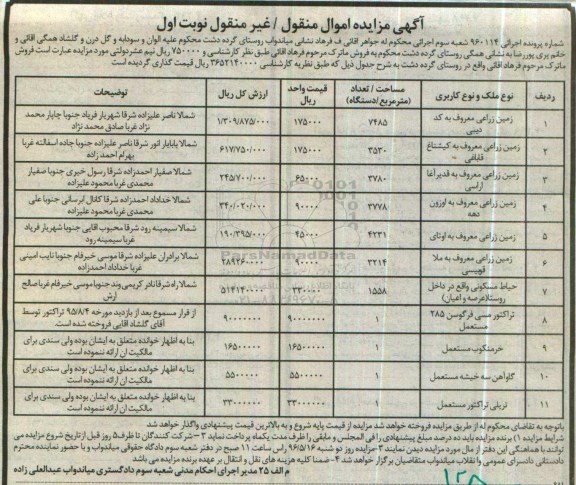 آگهی مزایده اموال منقول / غیر منقول نوبت اول
شماره پرونده اجرائی ۹۶۰۱۱۴ شعبه سوم اجرائی محکوم له جواهر آقائی ف فرهاد نشانی میاندواب روستای گرده دشت محکوم علیه الوان و سودابه و گل درن و گلشاد همگی آقائی و
خانم پری پوررضا به نشانی همگی روستای گرده دشت محکوم به فروش ماترک مرحوم فرهاد آقائی طبق نظر کارشناسی و ۷۵۰۰۰۰ ریال نیم عشر دولتی مورد مزایده عبارت است فروش
ماترک مرحوم فرهاد آقائی واقع در روستای گرده دشت به شرح جدول ذیل که طبق نظریه کارشناسی ۳۶۵۲۱۴۰۰۰۰ ریال قیمت گذاری گردیده است
ردیف نوع ملک و نوع کاربری مساحت / تعداد (مترمربع/دستگاه) قیمت واحد ریال ارزش کل ریال توضیحات
۱ زمین زراعی معروف به کد دیبی ۷۴۸۵ ۱۷۵۰۰۰ ۱/۳۰۹/۸۷۵/۰۰۰ شمالا ناصر علیزاده شرقا شهریار فریاد جنوبا چاپار محمد نژاد غربا صادق محمد نژاد
۲ زمین زراعی معروف به کیشناغ قلاقی ۳۵۳۰ ۱۷۵۰۰۰ ۶۱۷/۷۵۰/۰۰۰ شمالا بابایار انور شرقا ناصر علیزاده جنوبا جاده اسفالته غربا بهرام احمد زاده
۳ زمین زراعی معروف به قدیرآغا اراسی ۳۷۸۰ ۶۵۰۰۰ ۲۴۵/۷۰۰/۰۰۰ شمالا صفیار احمدزاده شرقا رسول خیری جنوبا صفیار محمدی غربا محمود علیزاده
۴ زمین زراعی معروف به اوزون دهه ۳۷۷۸ ۹۰۰۰۰ ۳۴۰/۰۲۰/۰۰۰ شمالا خداداد احمدزاده شرقا کانال ابرسانی جنوبا علی محمدی غربا محمود علیزاده
۵ زمین زراعی معروف به اوتای ۴۲۳۱ ۴۵۰۰۰ ۱۹۰/۳۹۵/۰۰۰ شمالا سیمینه رود شرقا محبوب آقایی جنوبا شهریار فریاد غربا سیمینه رود
۶ زمین زراعی معروف به ملا قهیسی ۳۲۱۴ ۹۰۰۰۰ ۲۸۹۲۶۰۰۰۰ شمالا برادران علیزاده شرقا موسی خیرفام جنوبا نایب امینی غربا خداداد احمدزاده
۷ حیاط مسکونی واقع در داخل روستا(عرصه و اعیان) ۱۵۵۸ ۳۳۰۰۰۰ ۵۱۴۱۴۰۰۰۰ شمالا راه شرقا نادر کریمی وند جنوبا موسی خیرفام غربا صالح ارش
۸ تراکتور مسی فرگوسن ۲۸۵ مستعمل ۱ ۹۰۰۰۰۰۰۰ ۹۰۰۰۰۰۰۰ از قرار مسموع بعد از بازدید مورخه ۹۵/۸/۴ تراکتور توسط آقای گلشاد آقایی فروخته شده است.
۹ خرمنکوب مستعمل ۱ ۱۶۵۰۰۰۰۰ ۱۶۵۰۰۰۰۰ بنا به اظهار خوانده متعلق به ایشان بوده ولی سندی برای مالکیت ان ارائه ننموده است
۱۰ گاوآهن سه خیشه مستعمل ۱ ۵۵۰۰۰۰۰ ۵۵۰۰۰۰۰ بنا به اظهار خوانده متعلق به ایشان بوده ولی سندی برای مالکیت ان ارائه ننموده است
۱۱ تریلی تراکتور مستعمل ۱ ۳۳۰۰۰۰۰۰ ۳۳۰۰۰۰۰۰ بنا به اظهار خوانده متعلق به ایشان بوده ولی سندی برای مالکیت ان ارائه ننموده است
باتوجه به تقاضای محکوم له از طریق مزایده فروخته خواهد شد مزایده از قیمت پایه شروع و به بالاترین قیمت پیشنهادی واگذار خواهد شد
شرایط مزایده ۱) برنده مزایده باید ده درصد مبلغ پیشنهادی را فی المجلس و مابقی را ظرف مدت یکماه پرداخت نماید ۲- شرکت کنندگان تا ظرف ۵ روز قبل از تاریخ شروع مزایده می
توانند با هماهنگی این دفتر از مال مورد مزایده دیدن نمایند ۳- مزایده روز دو شنبه ۹۶/۵/۱۶ راس ساعت ۱۱ صبح در دفتر شعبه سوم دادگاه حقوقی میاندواب و با حضور نماینده محترم
دادستانی دادسرای عمومی و انقلاب میاندواب متقاضیان برگزار خواهد شد ۴- ضمنا کلیه هزینه های نقل و انتقال بر عهده برنده مزایده می باشد
م الف ۲۵ مدیر اجرای احکام مدنی شعبه سوم دادگستری میاندواب عبدالعلی زاده
ParsNamadData